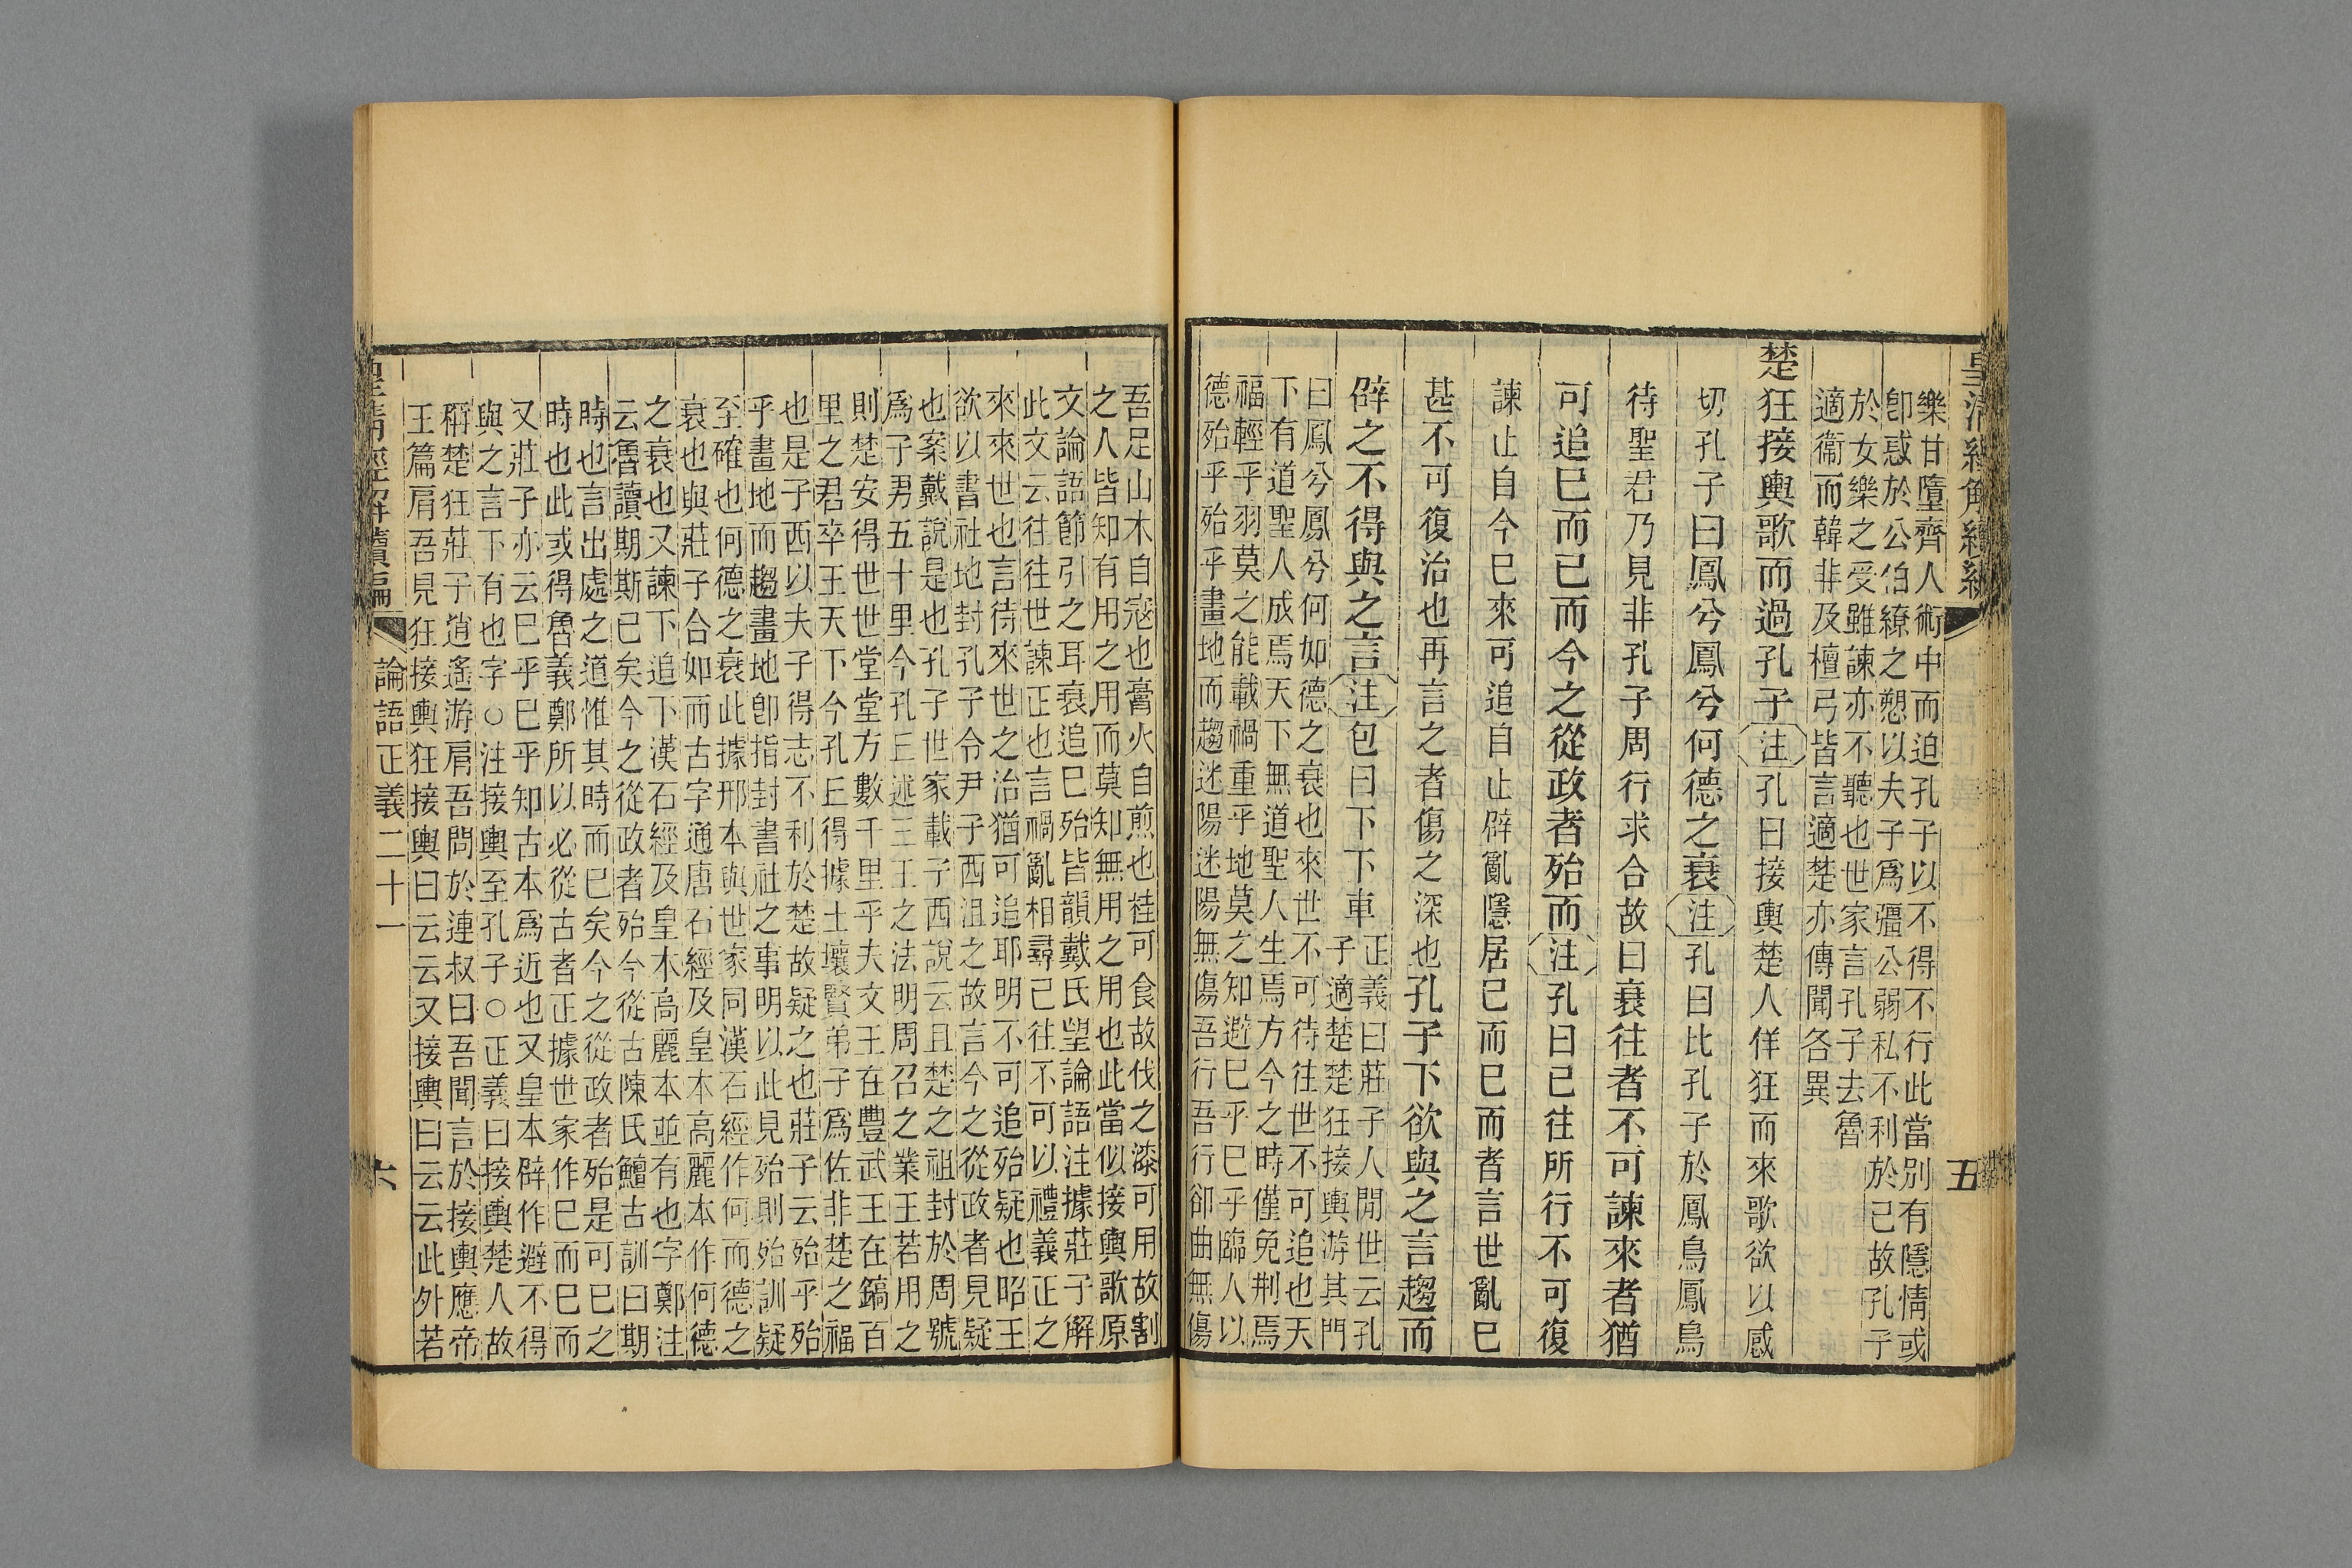 皇清經解續編
五
樂甘墮齊人術中而迫孔子以不得不行此當別有隱情或
卽惑於公伯繚之愬以夫子爲彊公弱私不利於己故孔子
於女樂之受雖諫亦不聽也世家言孔子去魯
適衞而韓非及檀弓皆言適楚亦傳聞各異
楚狂接輿歌而過孔子注孔曰接輿楚人佯狂而來歌欲以感
切孔子曰鳳兮鳳兮何德之衰注孔曰比孔子於鳳鳥鳳鳥
待聖君乃見非孔子周行求合故曰衰往者不可諫來者猶
可追巳而已而今之從政者殆而注孔曰已往所行不可復
諫止自今巳來可追自止辟亂隱居已而巳而者言世亂巳
甚不可復治也再言之者傷之深也孔子下欲與之言趨而
辟之不得與之言注包曰下下車
正義曰莊子人閒世云孔
子適楚楚狂接輿游其門
曰鳳兮鳳兮何如德之衰也來世不可待往世不可追也天
下有道聖人成焉天下無道聖人生焉方今之時僅免荆焉
福輕乎羽莫之能載禍重乎地莫之知避巳乎巳乎臨人以
德殆乎殆乎畫地而趨迷陽迷陽無傷吾行吾行卻曲無傷
吾足山木自寇也膏火自煎也桂可食故伐之漆可用故割
之人皆知有用之用而莫知無用之用也此當似接輿歌原
文論語節引之耳衰追巳殆皆韻戴氏望論語注據莊子解
此文云往往世諫正也言禍亂相尋己往不可以禮義正之
來來世也言待來世之治猶可追耶明不可追殆疑也昭王
欲以書社地封孔子令尹子西沮之故言今之從政者見疑
也案戴說是也孔子世家載子西說云且楚之祖封於周號
爲子男五十里今孔丘述三王之法明周召之業王若用之
則楚安得世世堂堂方數千里乎夫文王在豐武王在鎬百
里之君卒王天下今孔丘得據土壤賢弟子爲佐非楚之福
也是子西以夫子得志不利於楚故疑之也莊子云殆乎殆
乎畫地而趨畫地卽指封書社之事明以此見殆則殆訓疑
至確也何德之衰此據邢本與世家同漢石經作何而德之
衰也與莊子合如而古字通唐石經及皇本高麗本作何德
之衰也又諫下追下漢石經及皇本高麗本並有也字鄭注
云魯讀期斯已矣今之從政者殆今從古陳氏鱣古訓曰期
時也言出處之道惟其時而巳矣今之從政者殆是可巳之
時也此或得魯義鄭所以必從古者正據世家作巳而巳而
又莊子亦云巳乎巳乎知古本爲近也又皇本辟作避不得
與之言下有也字○注接輿至孔子○正義曰接輿楚人故
稱楚狂莊子逍遙游肩吾問於連叔曰吾聞言於接輿應帝
王篇肩吾見狂接輿狂接輿曰云云又接輿曰云云此外若
皇清經解續編
論語正義二十一
六